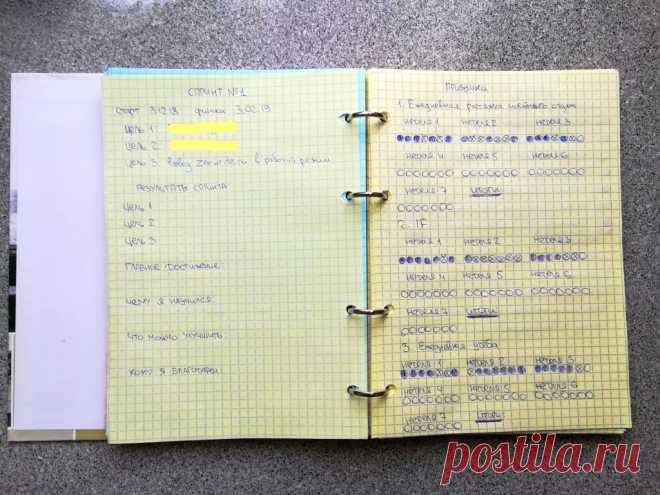 СПРИНТ №1
старт 3.12.18 финиш 3.02.19
цель 1:
цель 2:
цель 3. ввод в рабочий режим
РЕЗУЛЬТАТЫ СПРИНТА
цель 1
цель 2
цель 3
ГЛАВНОЕ ДОСТИЖЕНИЕ
ЧЕМУ Я НАУЧИЛСЯ
ЧТО МОЖНО УЛУЧШИТЬ
КОМУ Я БЛАГОДАРЕН
ПРИВЫЧКИ
1. Ежедневная растяжка шейного отдела
неделя 1 неделя 2 неделя 3
неделя 4 неделя 5 неделя 6
неделя 7 итоги:
2. IF
неделя 1 неделя 2 неделя 3
неделя 4 неделя 5 неделя 6
неделя 7 итоги:
3. Ежедневная
неделя 1 неделя 2 неделя 3
неделя 4 неделя 5 неделя 6
неделя 7 итоги:
postila.ru